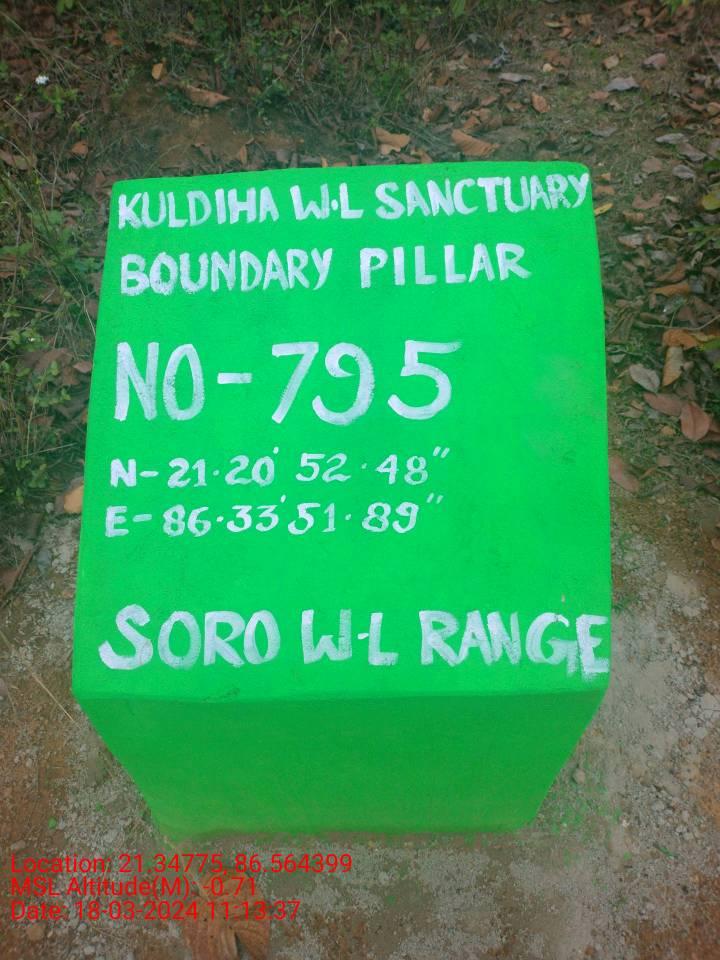 KULDIHA W.L SANCTUARY
BOUNDARY PILLAR
NO-795
N-21.20' 52.48"
E-86.33'51.89"
SORO W-L RANGE
Location: 21.34775, 86.564399
MSL Altitude(M): -0.71
Date: 18-03-2024 11:13:37